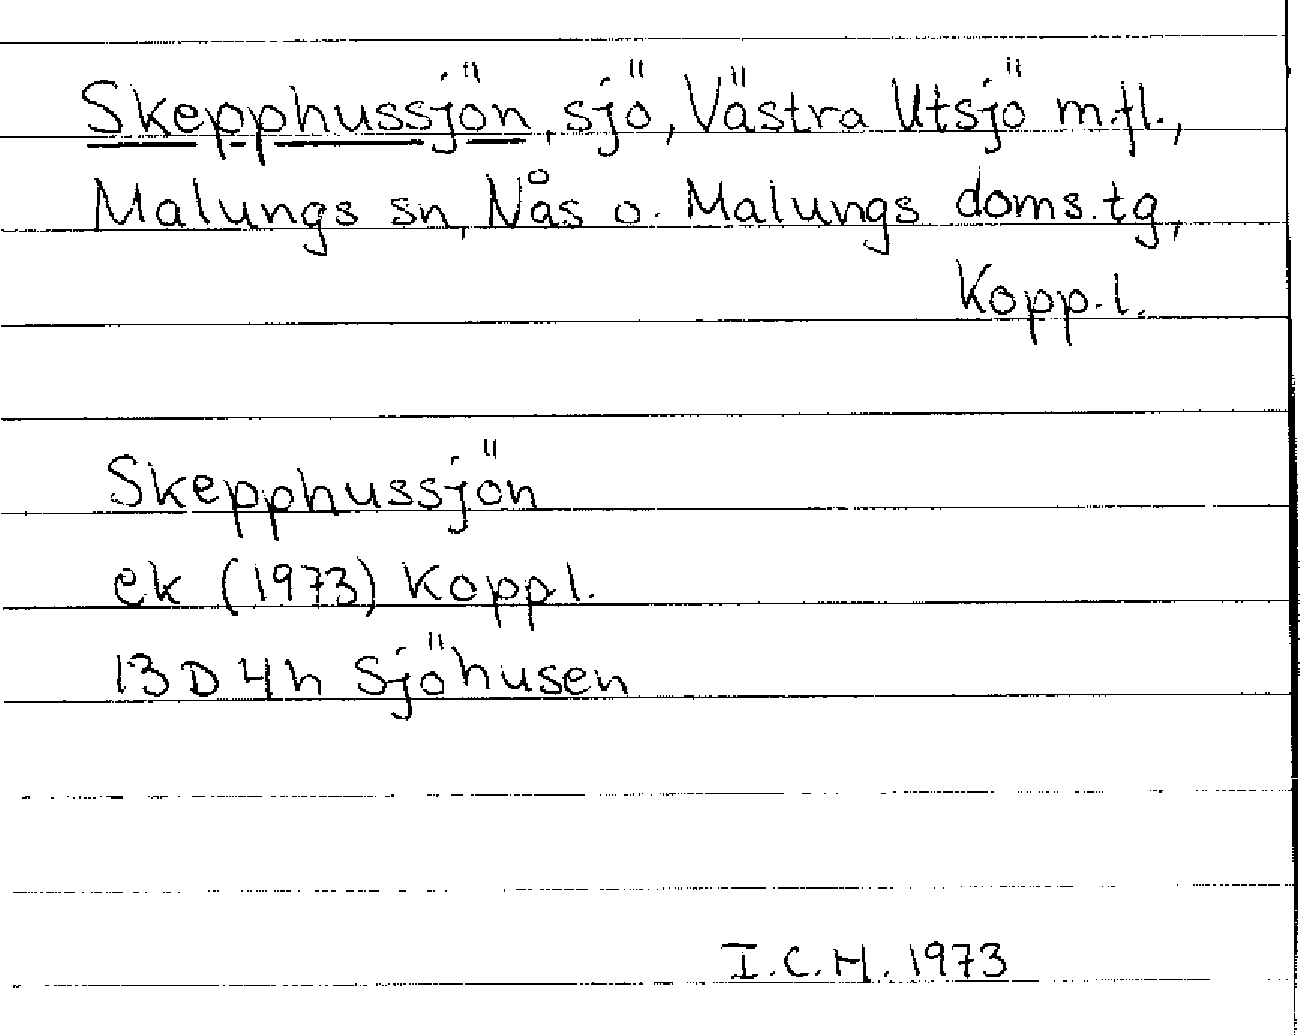 Skepphussjön, sjö, Västra Utsjö m.fl.,
Malungs sn, Nås o. Malungs doms.tg,
Kopp.l.
Skepphussjön
ek (1973) Kopp.l.
13 D 4h Sjöhusen
I.C.H. 1973